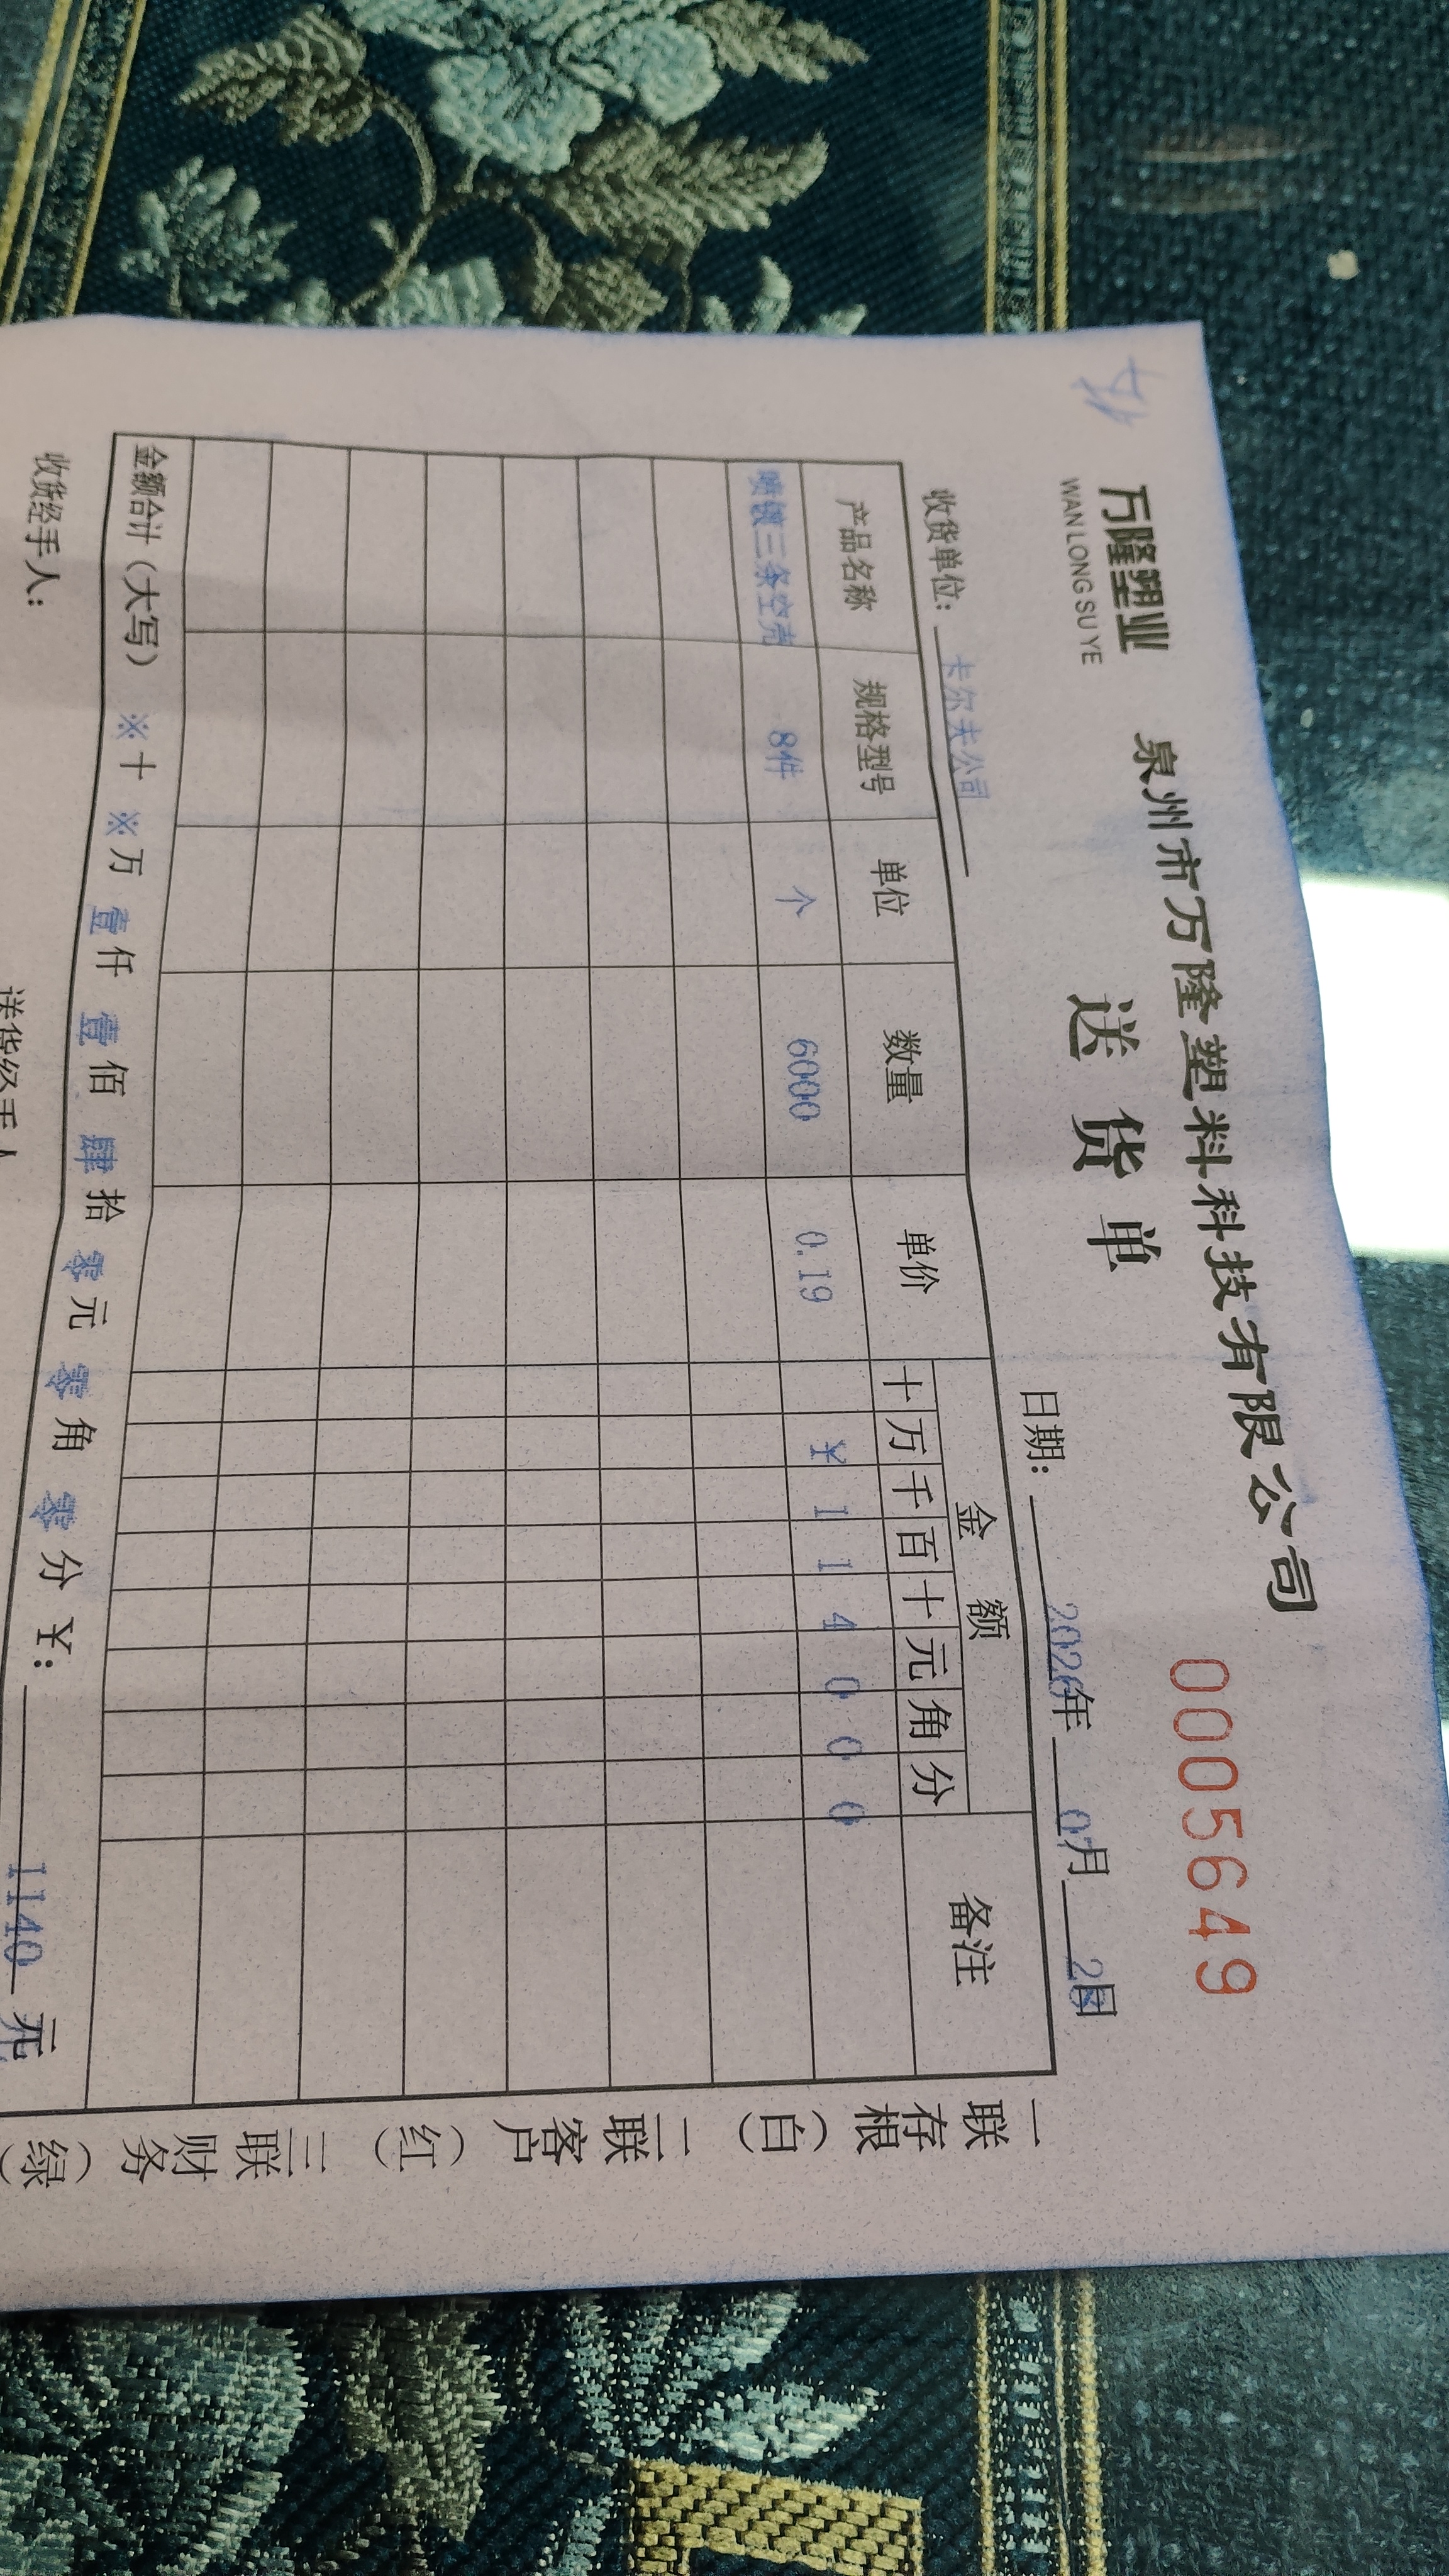 万隆塑业
WAN LONG SU YE
泉州市万隆塑料科技有限公司
送货单
0005649
收货单位: 卡尔夫公司
日期: 2026年 0月 2日
产品名称 规格型号 单位 数量 单价 金额 备注
十 万 千 百 十 元 角 分
喷镀三条空壳 8件 个 6000 0.19 ¥ 1 1 4 0 0 0
金额合计(大写) ※ 十 ※ 万 壹 仟 壹 佰 肆 拾 零 元 零 角 零 分 ¥: 1140 元
收货经手人: 送货经手人
一联存根(白) 二联客户(红) 三联财务(绿)